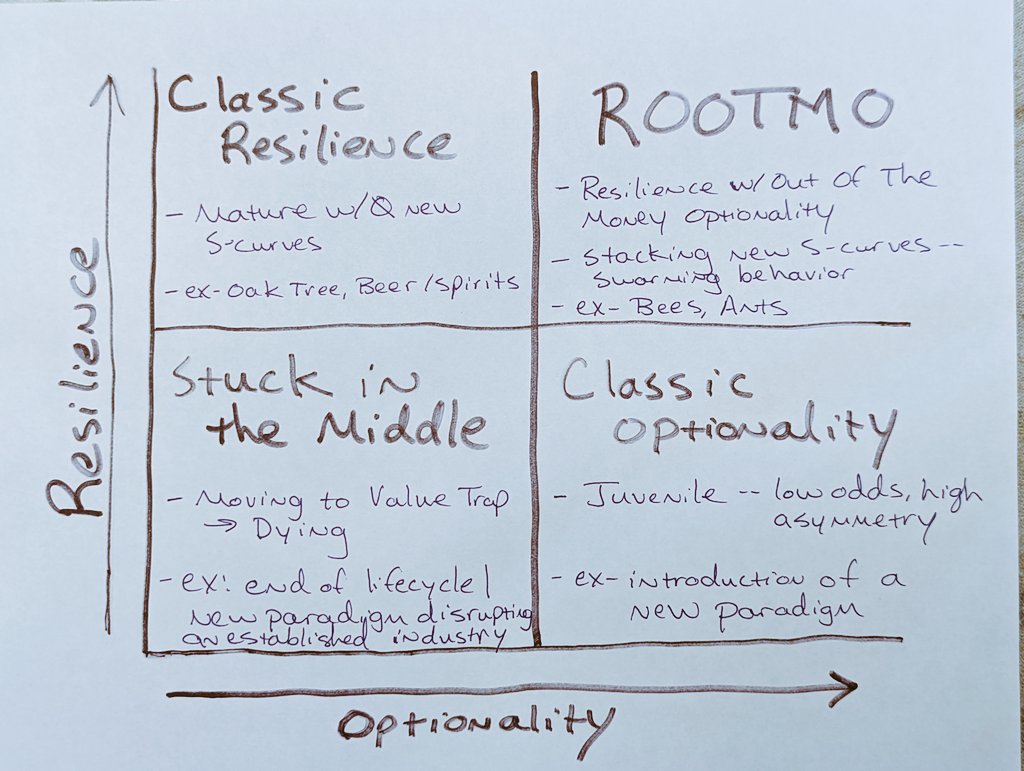 Resilience
Classic
Resilience
- Mature w/ 0 new
S-curves
- ex- Oak Tree, Beer/Spirits
ROOTMO
- Resilience w/ Out Of The
Money Optionality
- Stacking new S-curves --
Swarming behavior
- ex- Bees, Ants
Stuck in
the Middle
- Moving to Value Trap
→ Dying
- ex: end of lifecycle/
New paradigm disrupting
an established industry
Classic
Optionality
- Juvenile -- low odds, high
asymmetry
- ex- introduction of a
new paradigm
Optionality